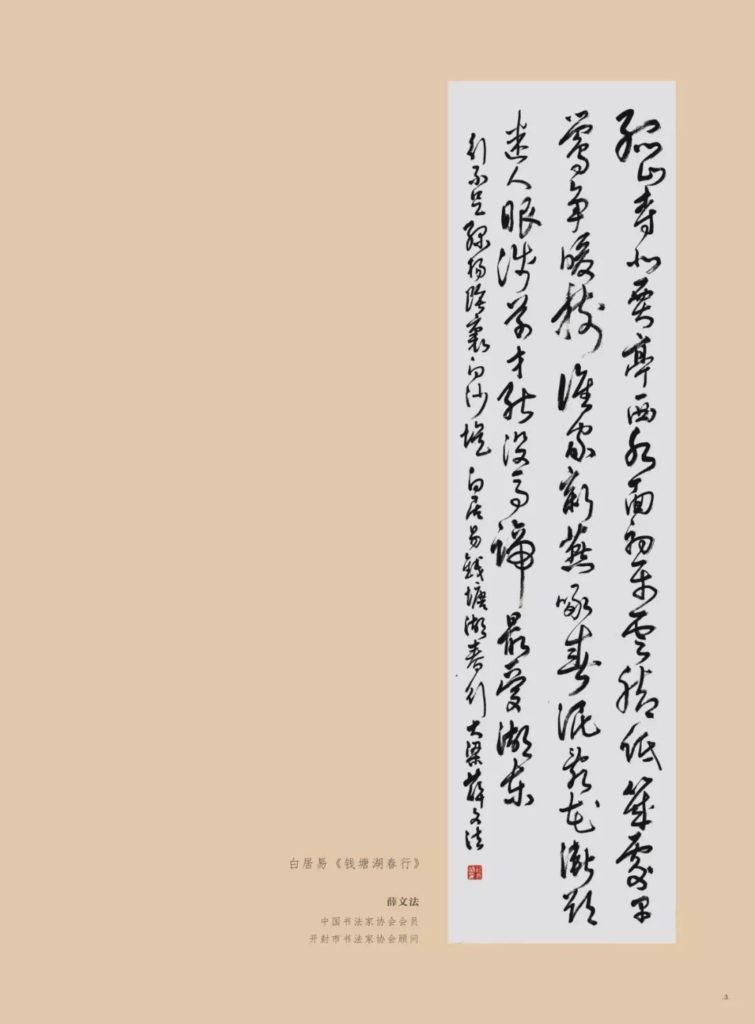 孤山寺北賈亭西水面初平雲腳低幾處早
鶯争暖樹誰家新燕啄春泥亂花漸欲
迷人眼淺草才能没馬蹄最愛湖東
行不足綠楊陰裏白沙堤 白居易錢塘湖春行 大梁薛文法
白居易《钱塘湖春行》
薛文法
中国书法家协会会员
开封市书法家协会顾问
.3.